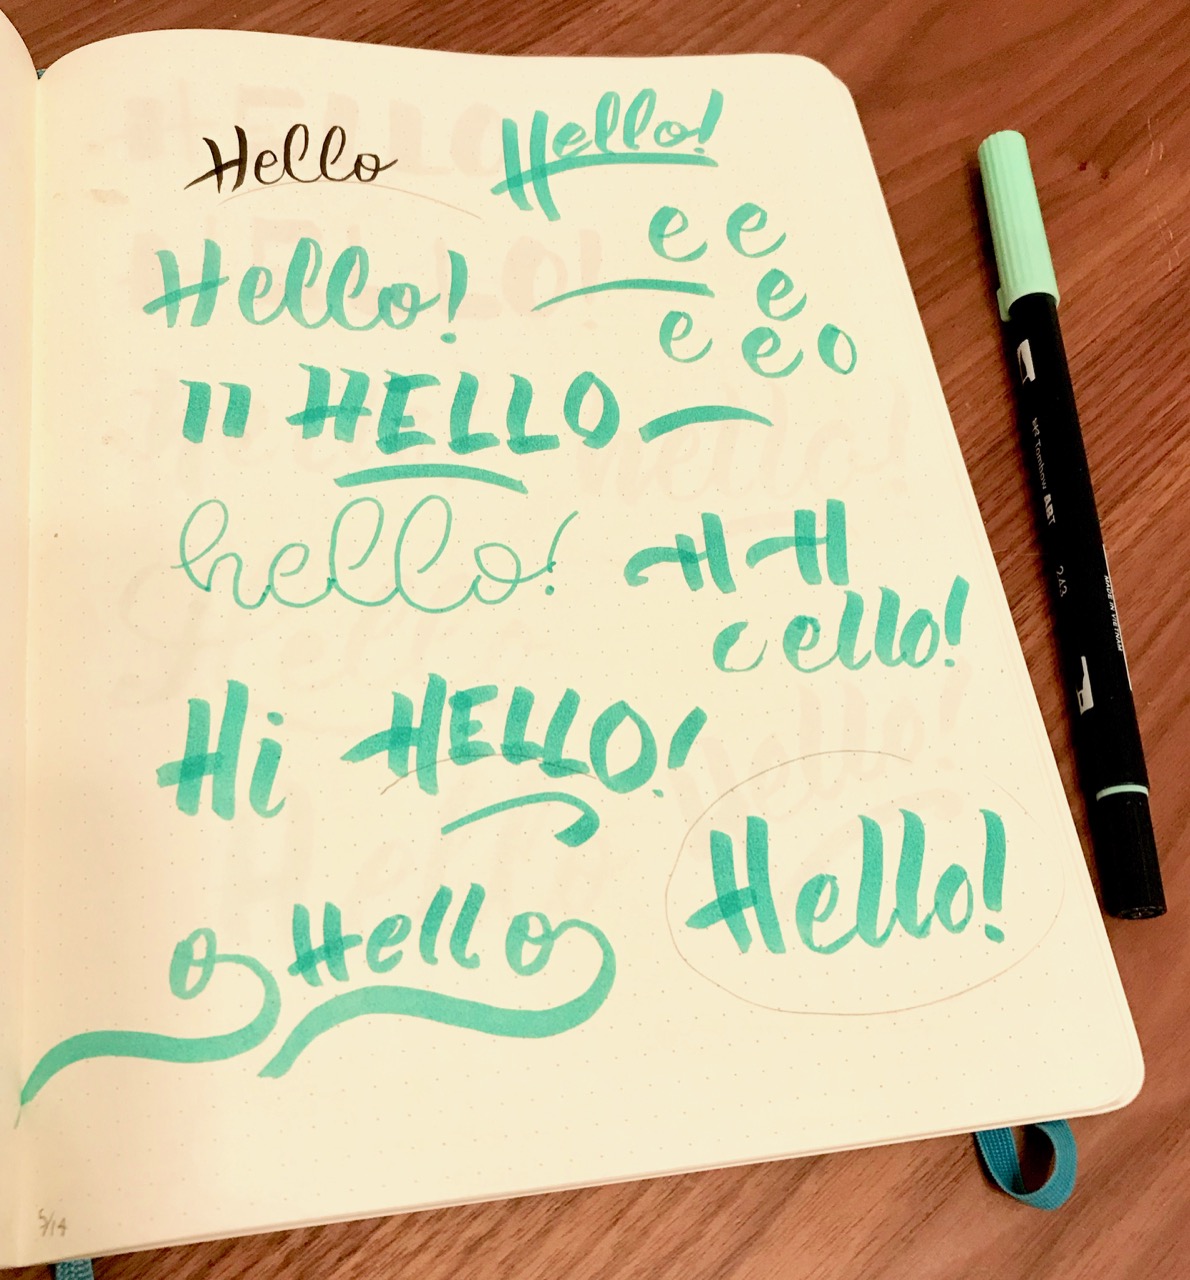 Hello Hello!
e e
Hello! e
e e o
11 HELLO
hello! H H
c ello!
Hi HELLO!
Hello!
o Hello
5/14
Tombow ABT
243
MADE IN VIETNAM